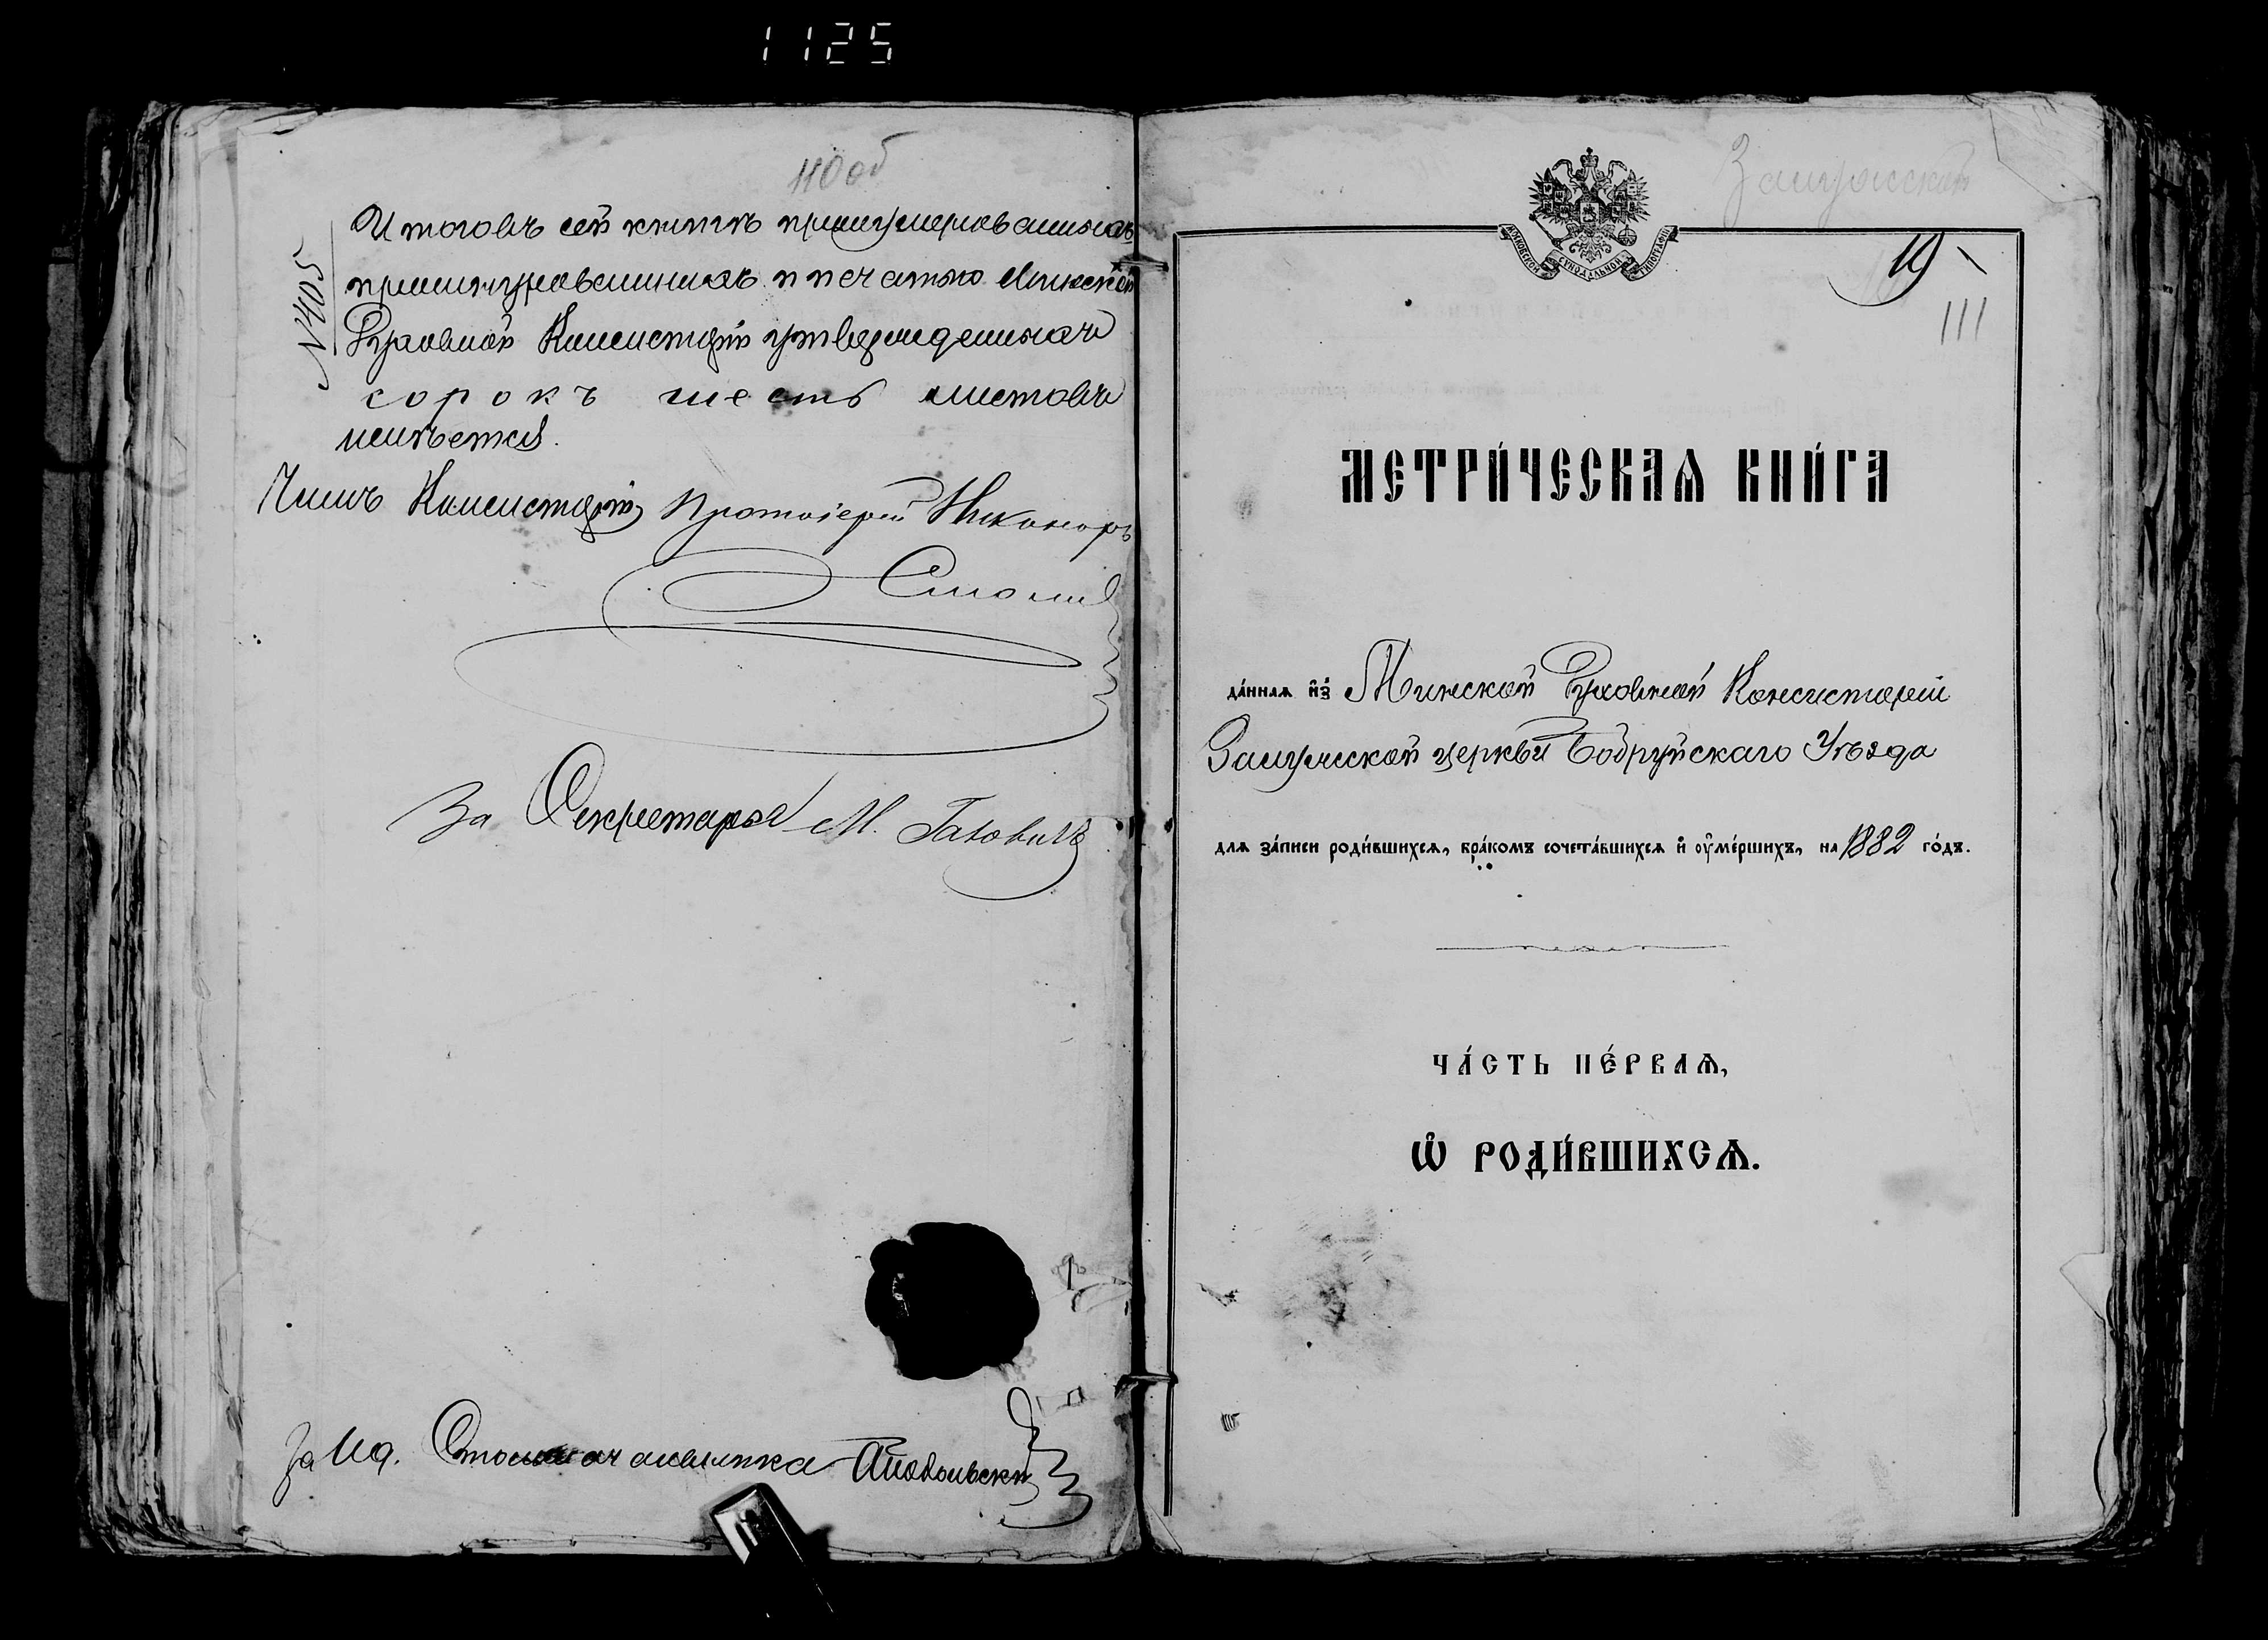 1125
110 об
№ 405
Итого въ сей книгѣ пронумерованныхъ
прошнурованныхъ и печатью Минской
Духовной Консисторіи утвержденныхъ
сорокъ шесть листовъ
имѣется.
Членъ Консисторіи, Протоіерей Никаноръ
За Секретаря М.
За Ид. Столоначальника
19
111
МОСКОВСКОЙ СѴНОДАЛЬНОЙ ТИПОГРАФІИ
МЕТРИ́ЧЕСКАѦ КНИ́ГА
да́ннаѧ и҆з̾ Минской Духовной Консисторіи
церкви Бобруйскаго Уѣзда
для за́писи роди́вшихсѧ, бра́комъ сочета́вшихсѧ и҆ ᲂу҆ме́ршихъ, на 1882 го́дъ.
ЧА́СТЬ ПЕ́РВАѦ,
Ѽ РОДИ́ВШИХСѦ.